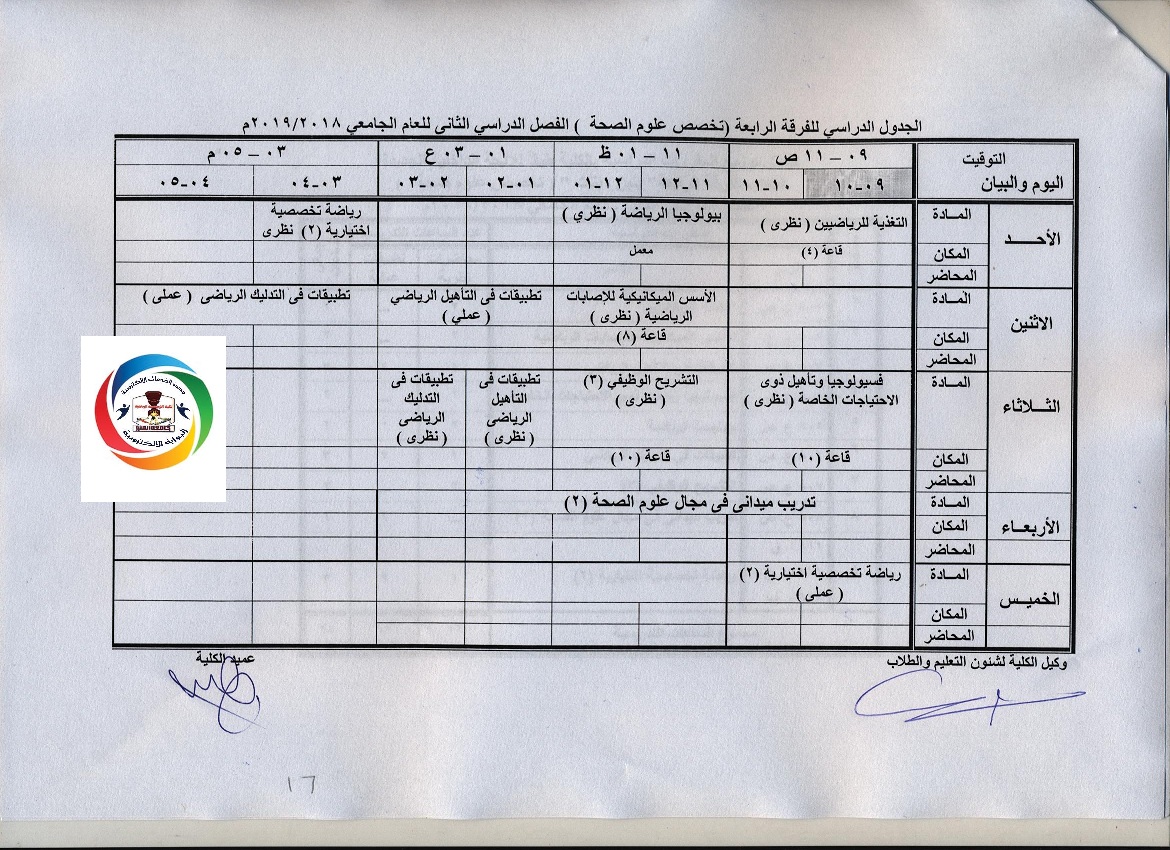 الجدول الدراسي للفرقة الرابعة (تخصص علوم الصحة ) الفصل الدراسي الثانى للعام الجامعي ٢٠١٩/٢٠١٨م
التوقيت
اليوم والبيان
٠٩ – ١١ ص
١١ – ٠١ ظ
٠١ – ٠٣ ع
٠٣ – ٠٥ م
٠٩-١٠
١٠-١١
١١-١٢
١٢-٠١
٠١-٠٢
٠٢-٠٣
٠٣-٠٤
٠٤-٠٥
الأحــد
المـادة
التغذية للرياضيين ( نظرى )
بيولوجيا الرياضة ( نظري )
رياضة تخصصية
اختيارية (٢) نظرى
المكان
قاعة (٤)
معمل
المحاضر
الاثنين
المـادة
الأسس الميكانيكية للإصابات
الرياضية ( نظرى )
تطبيقات فى التأهيل الرياضي
( عملي )
تطبيقات فى التدليك الرياضى ( عملى )
المكان
قاعة (٨)
المحاضر
الثـلاثاء
المـادة
فسيولوجيا وتأهيل ذوى
الاحتياجات الخاصة ( نظرى )
التشريح الوظيفي (٣)
( نظرى )
تطبيقات فى
التأهيل
الرياضى
( نظرى )
تطبيقات فى
التدليك
الرياضى
( نظرى )
المكان
قاعة (١٠)
قاعة (١٠)
المحاضر
الأربعـاء
المـادة
تدريب ميدانى فى مجال علوم الصحة (٢)
المكان
المحاضر
الخميـس
المـادة
رياضة تخصصية اختيارية (٢)
( عملى )
المكان
المحاضر
وكيل الكلية لشئون التعليم والطلاب
عميد الكلية
١٦
البوابة الالكترونية